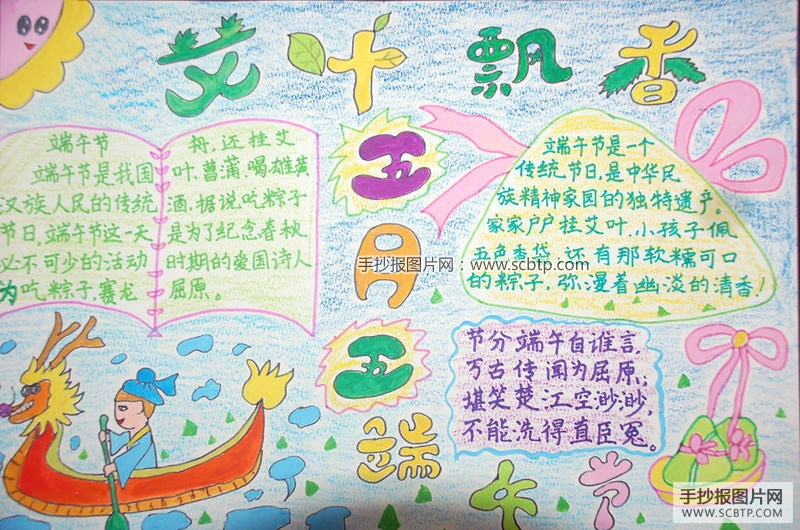 艾叶飘香
端午节
端午节是我国
汉族人民的传统
节日,端午节这一天
必不可少的活动
为吃粽子,赛龙
舟,还挂艾
叶.菖蒲.喝雄黄
酒.据说吃粽子
是为了纪念春秋
时期的爱国诗人
屈原。
五
月
五
端午节
端午节是一个
传统节日,是中华民
族精神家园的独特遗产。
家家户户挂艾叶.小孩子佩
五色香袋.还有那软糯可口
的粽子,弥漫着幽淡的清香!
节分端午自谁言,
万古传闻为屈原;
堪笑楚江空渺渺,
不能洗得直臣冤。
手抄报图片网:www.scbtp.com
手抄报图片网
WWW.SCBTP.COM